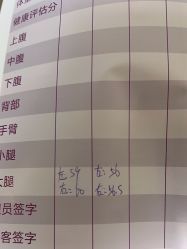 健康评估分
上腹
中腹
下腹
背部
手臂
小腿
大腿
左:59 左:56
右:60 右:56.5
员签字
客签字